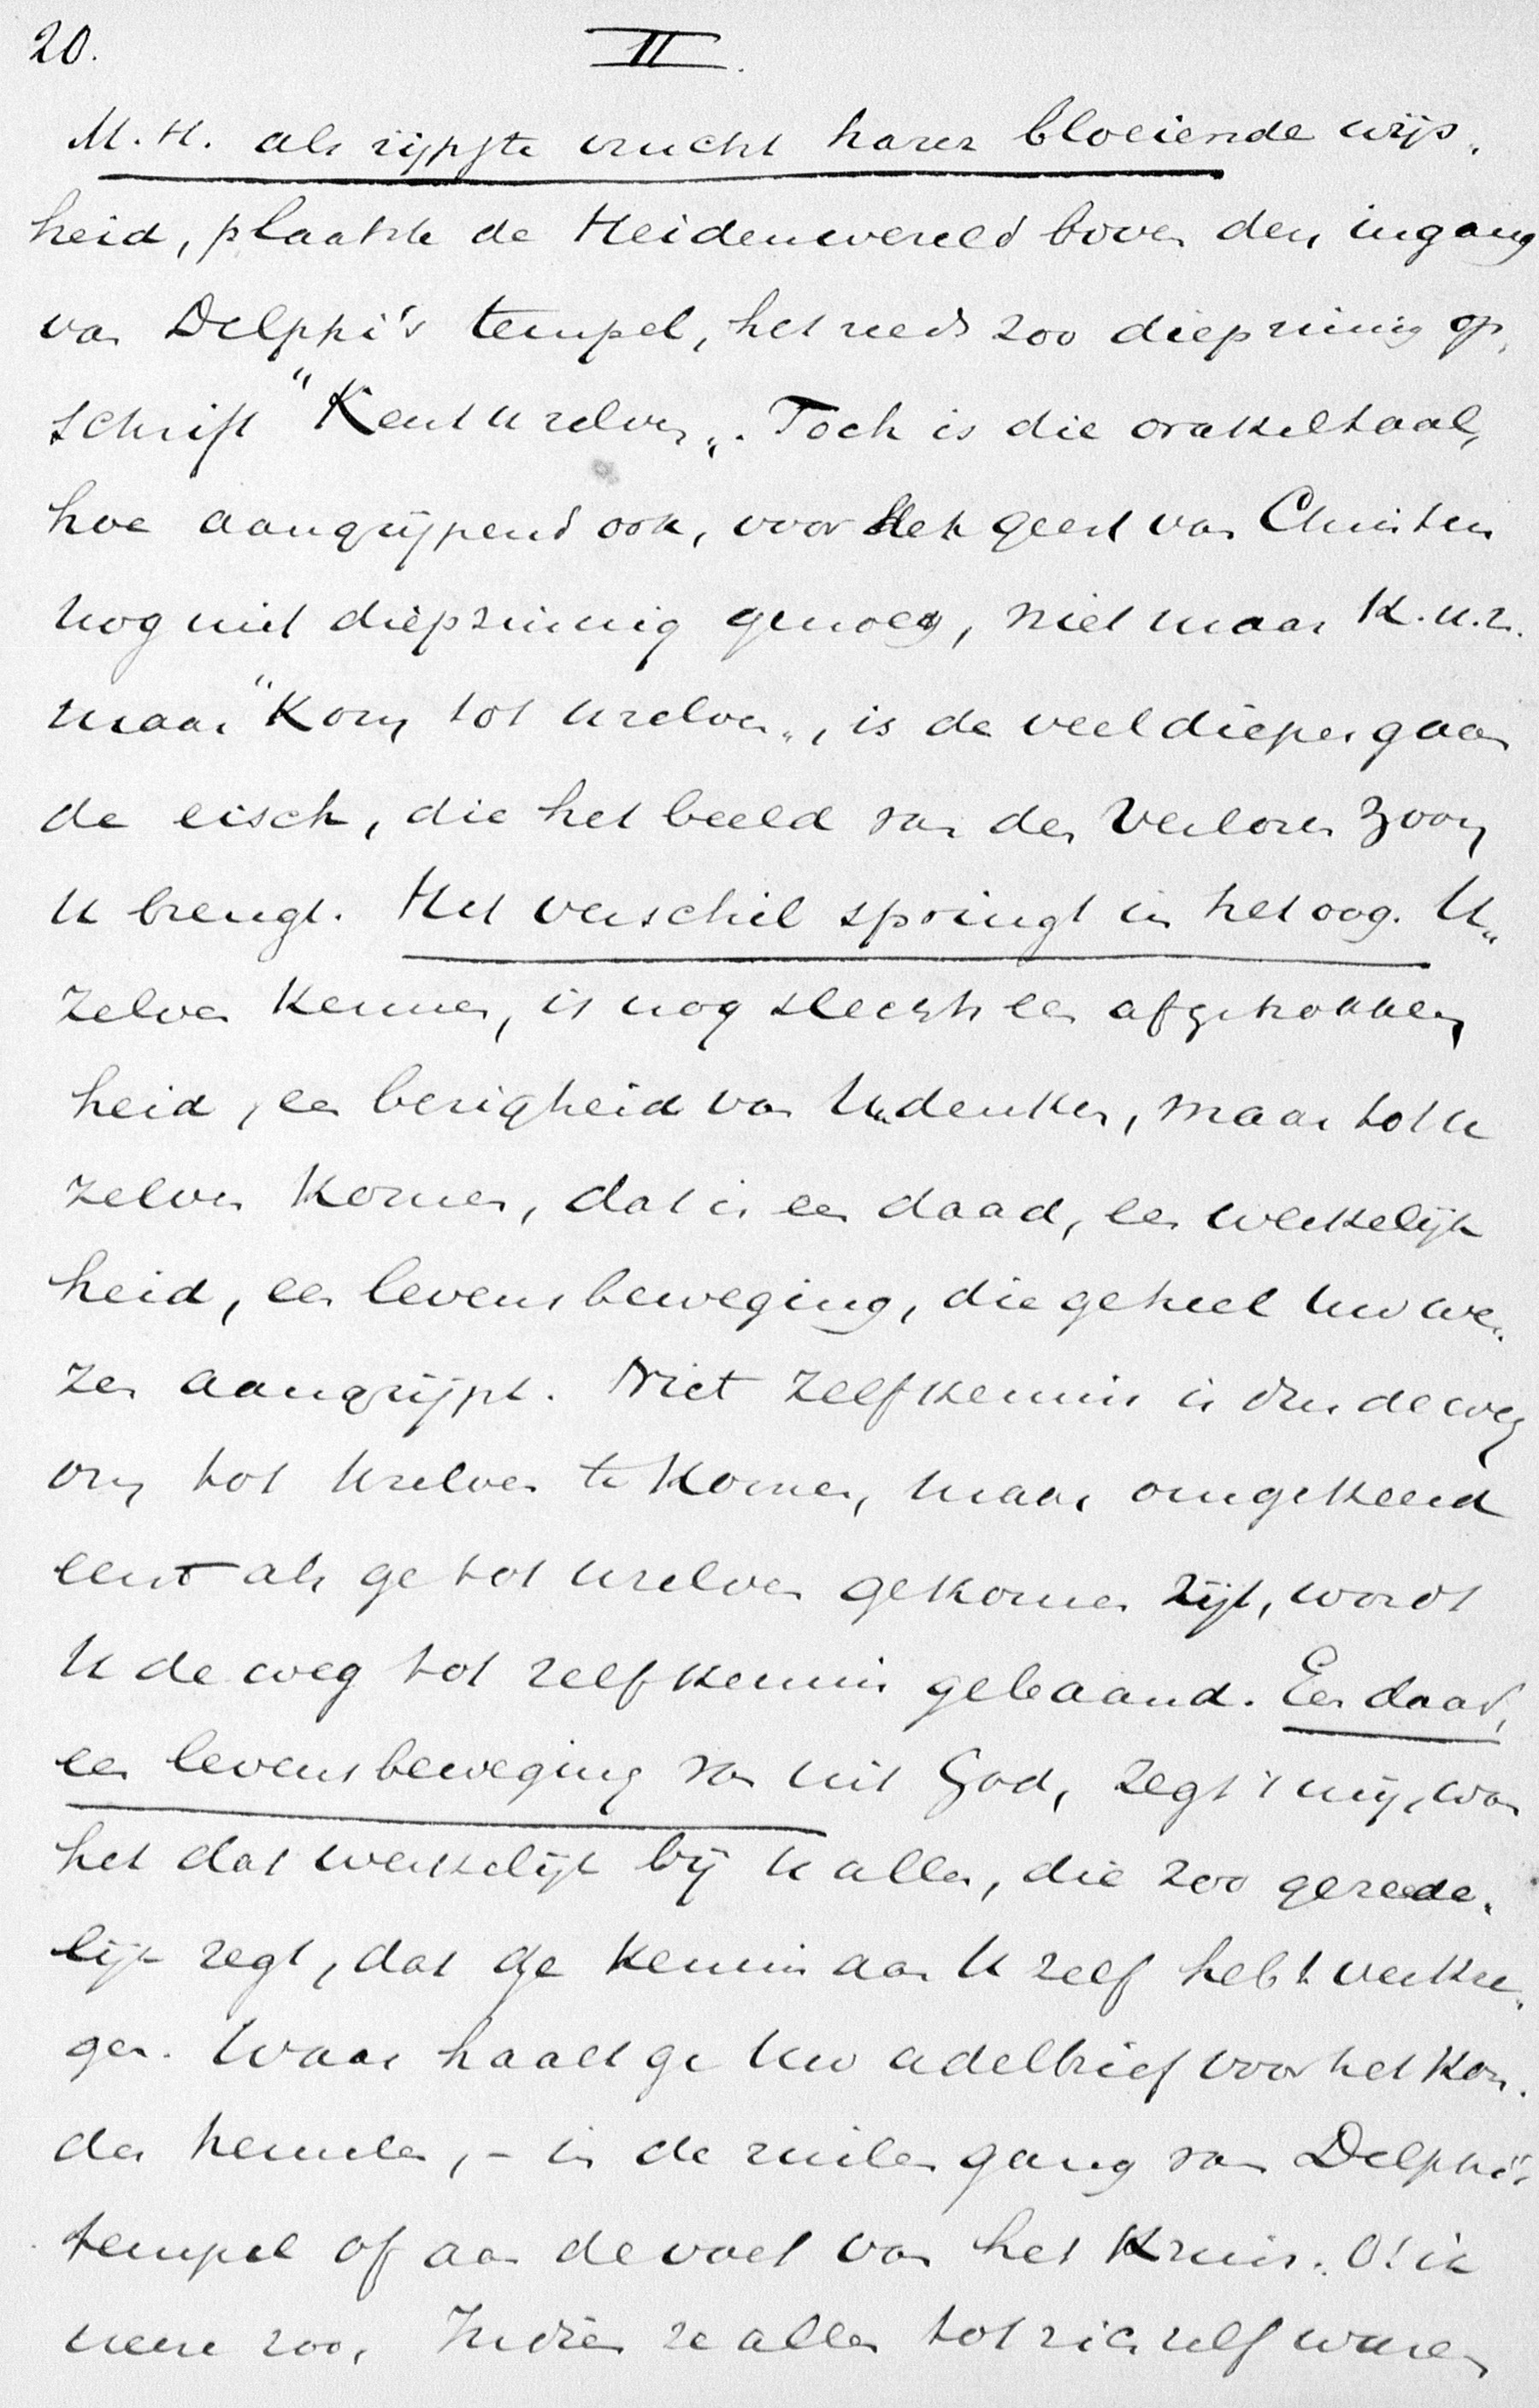 20. II.
M.H. als rijpste vrucht harer bloeiende wijs„
heid, plaatste de Heidenwereld boven den ingang
van Delphi's tempel, het reeds zoo diepzinnig op„
schrift "Kent Uzelven„. Toch is die orakeltaal,
hoe aangrijpend ook, voor den geest van Christen
nog niet diepzinnig genoeg, niet maar K.u.z.
maar "Kom tot Uzelven„, is de veel dieper gaan
de eisch, die het beeld van den Verloren Zoon
U brengt. Het verschil springt in het oog. U„
zelven kennen, is nog slechts een afgetrokken
heid, een bezigheid van Uw denken, maar tot U
zelven komen, dat is een daad, een werkelijk
heid, een levensbeweging, die geheel Uw we„
zen aangrijpt. Niet zelfkennis is dus de weg
om tot Uzelven te komen, maar omgekeerd
eerst als ge tot Uzelven gekomen zijt, wordt
U de weg tot zelfkennis gebaand. Een daad,
een levensbeweging van uit God, zegt 't mij, was
het dat werkelijk bij U allen, die zoo gereede„
lijk zegt, dat ge kennis aan U zelf hebt verkre„
gen. Waar haalt ge Uw adelbrief voor het Kon.
der hemelen, – in de zuilengang van Delphi's
tempel of aan de voet van het Kruis. O! ik
vrees zoo, Indien ze allen tot zichzelf waren